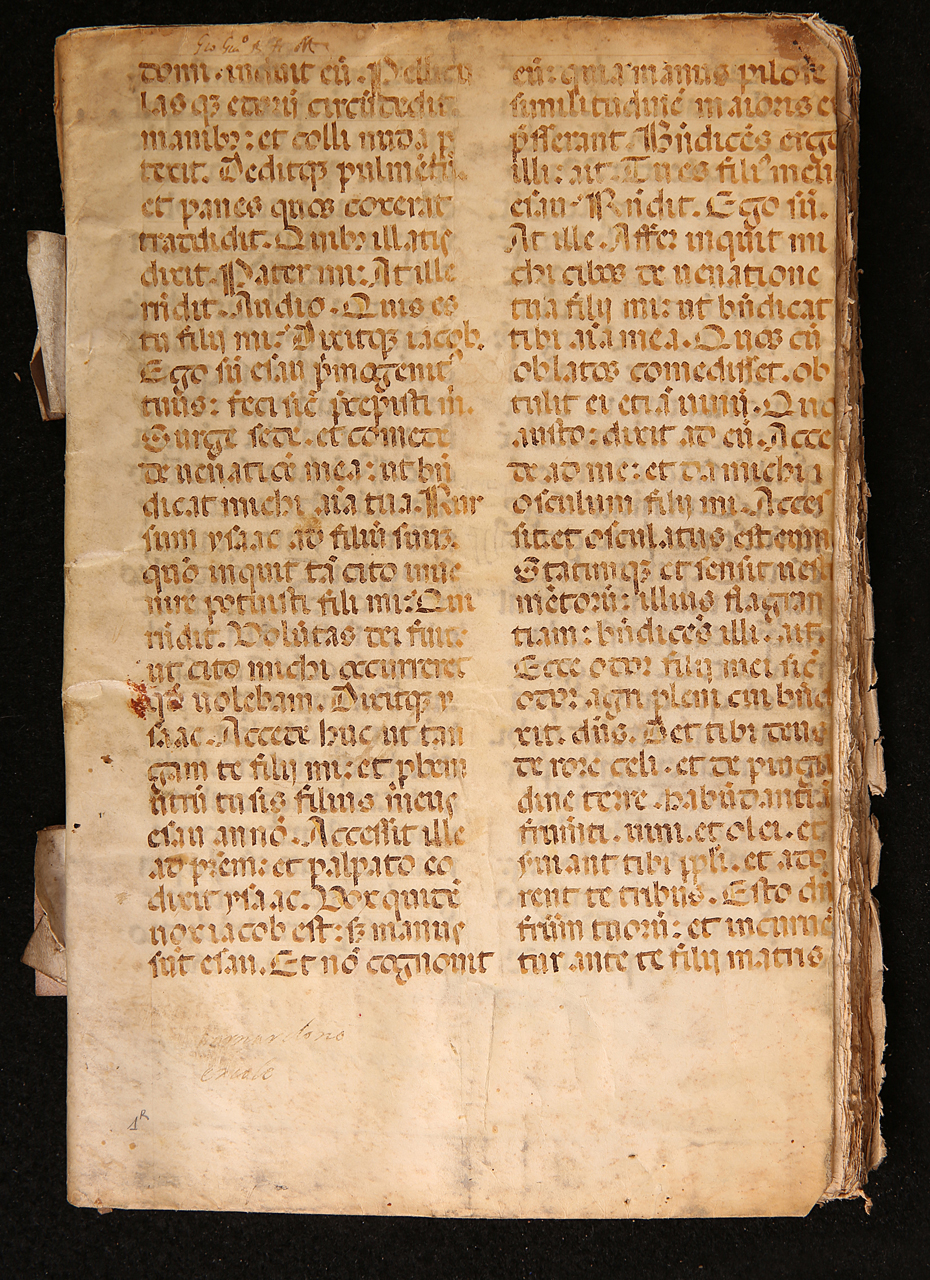 domi. induit eū. Pellicu
lasqꝫ edorū circūdedit
manibꝫ: et colli nuda p
texit. Deditqꝫ pulmētū.
et panes quos coxerat
tradidit. Quibꝫ illatis
dixit. Pater mi: At ille
rñdit. Audio. Quis es
tu fili mi? Dixitqꝫ iacob.
Ego sū esau pͥmogenitꝰ
tuus: feci sic̄ p̄cepisti m̄.
Surge sede. et comede
de uenatiōe mea: ut bn̄
dicat michi aīa tua. Rur
sum ysaac ad filiū suuꝫ.
quō inquit tā cito inue
nire potuisti fili mi? Qui
rñdit. Volūtas dei fuit:
ut cito michi occurreret
qd̄ uolebam. Dixitqꝫ y
saac. Accede huc ut tan
gam te filij mi: et pbem
utrū tu sis filius meus
esau annō. Accessit ille
ad prēm: et palpato eo
dixit ysaac. Vox quidē
uox iacob est: sꝫ manus
sūt esau. Et nō cognouit
eū: quia manus pilose
similitudinē maioris e
xp̄sserant. Bn̄dicēs ergo
illi: ait. Tu es filiꝰ meus
esau? Rn̄dit. Ego sū.
At ille. Affer inquit mi
chi cibos de uenatione
tua filij mi: ut bn̄dicat
tibi aīa mea. Quos cū
oblatos comedisset. ob
tulit ei etiā uinū. Quo
austo: dixit ad eū. Acce
de ad me: et da michi
osculum filij mi. Acces
sit et osculatus est eum
Statimqꝫ et sensit uesti
mētorū illius flagran
tiam: bn̄dicēs illi. ait.
Ecce odor filij mei sic̄
odor agri pleni cui bn̄d
xit. dn̄s. Det tibi deus
de rore celi. et de pingu
dine terre. habūdantiā
frumēti. uini. et olei. et
s̄uiant tibi ppl̄i. et ado
rent te tribus. Esto dn̄
frūm tuorū: et incuruē
tur ante te filij matris
1R